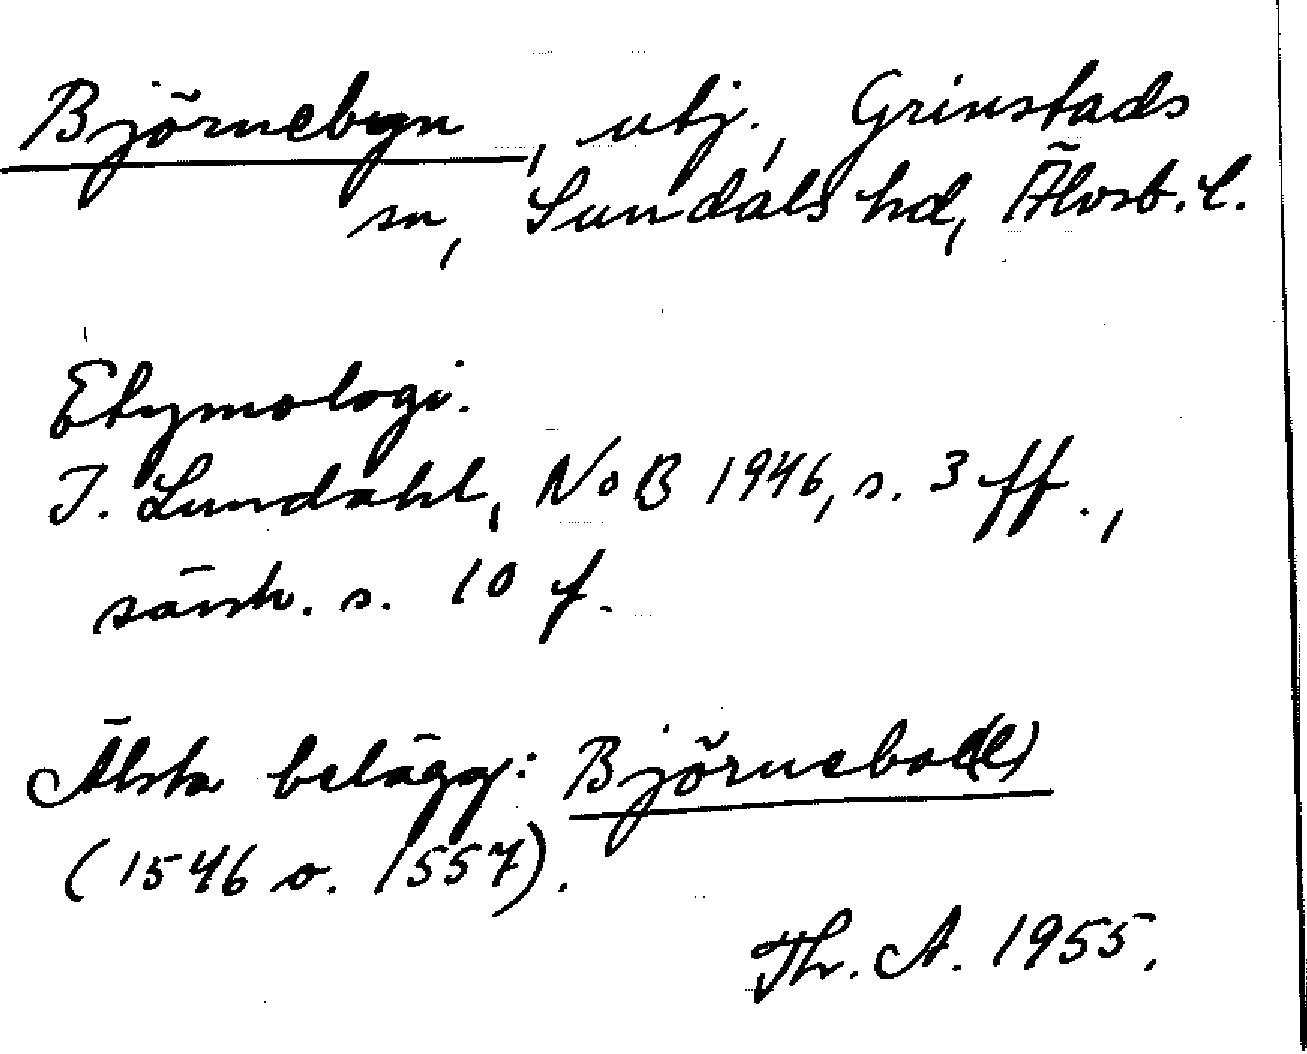 Björnebyn, utj., Grinstads
sn, Sundals hd, Älvsb. l.
Etymologi.
I. Lundahl, NoB 1946, s. 3 ff.,
särsk. s. 10 f.
Älsta belägg: Björnebol(l)
(1546 o. 1557).
Th. A. 1955.